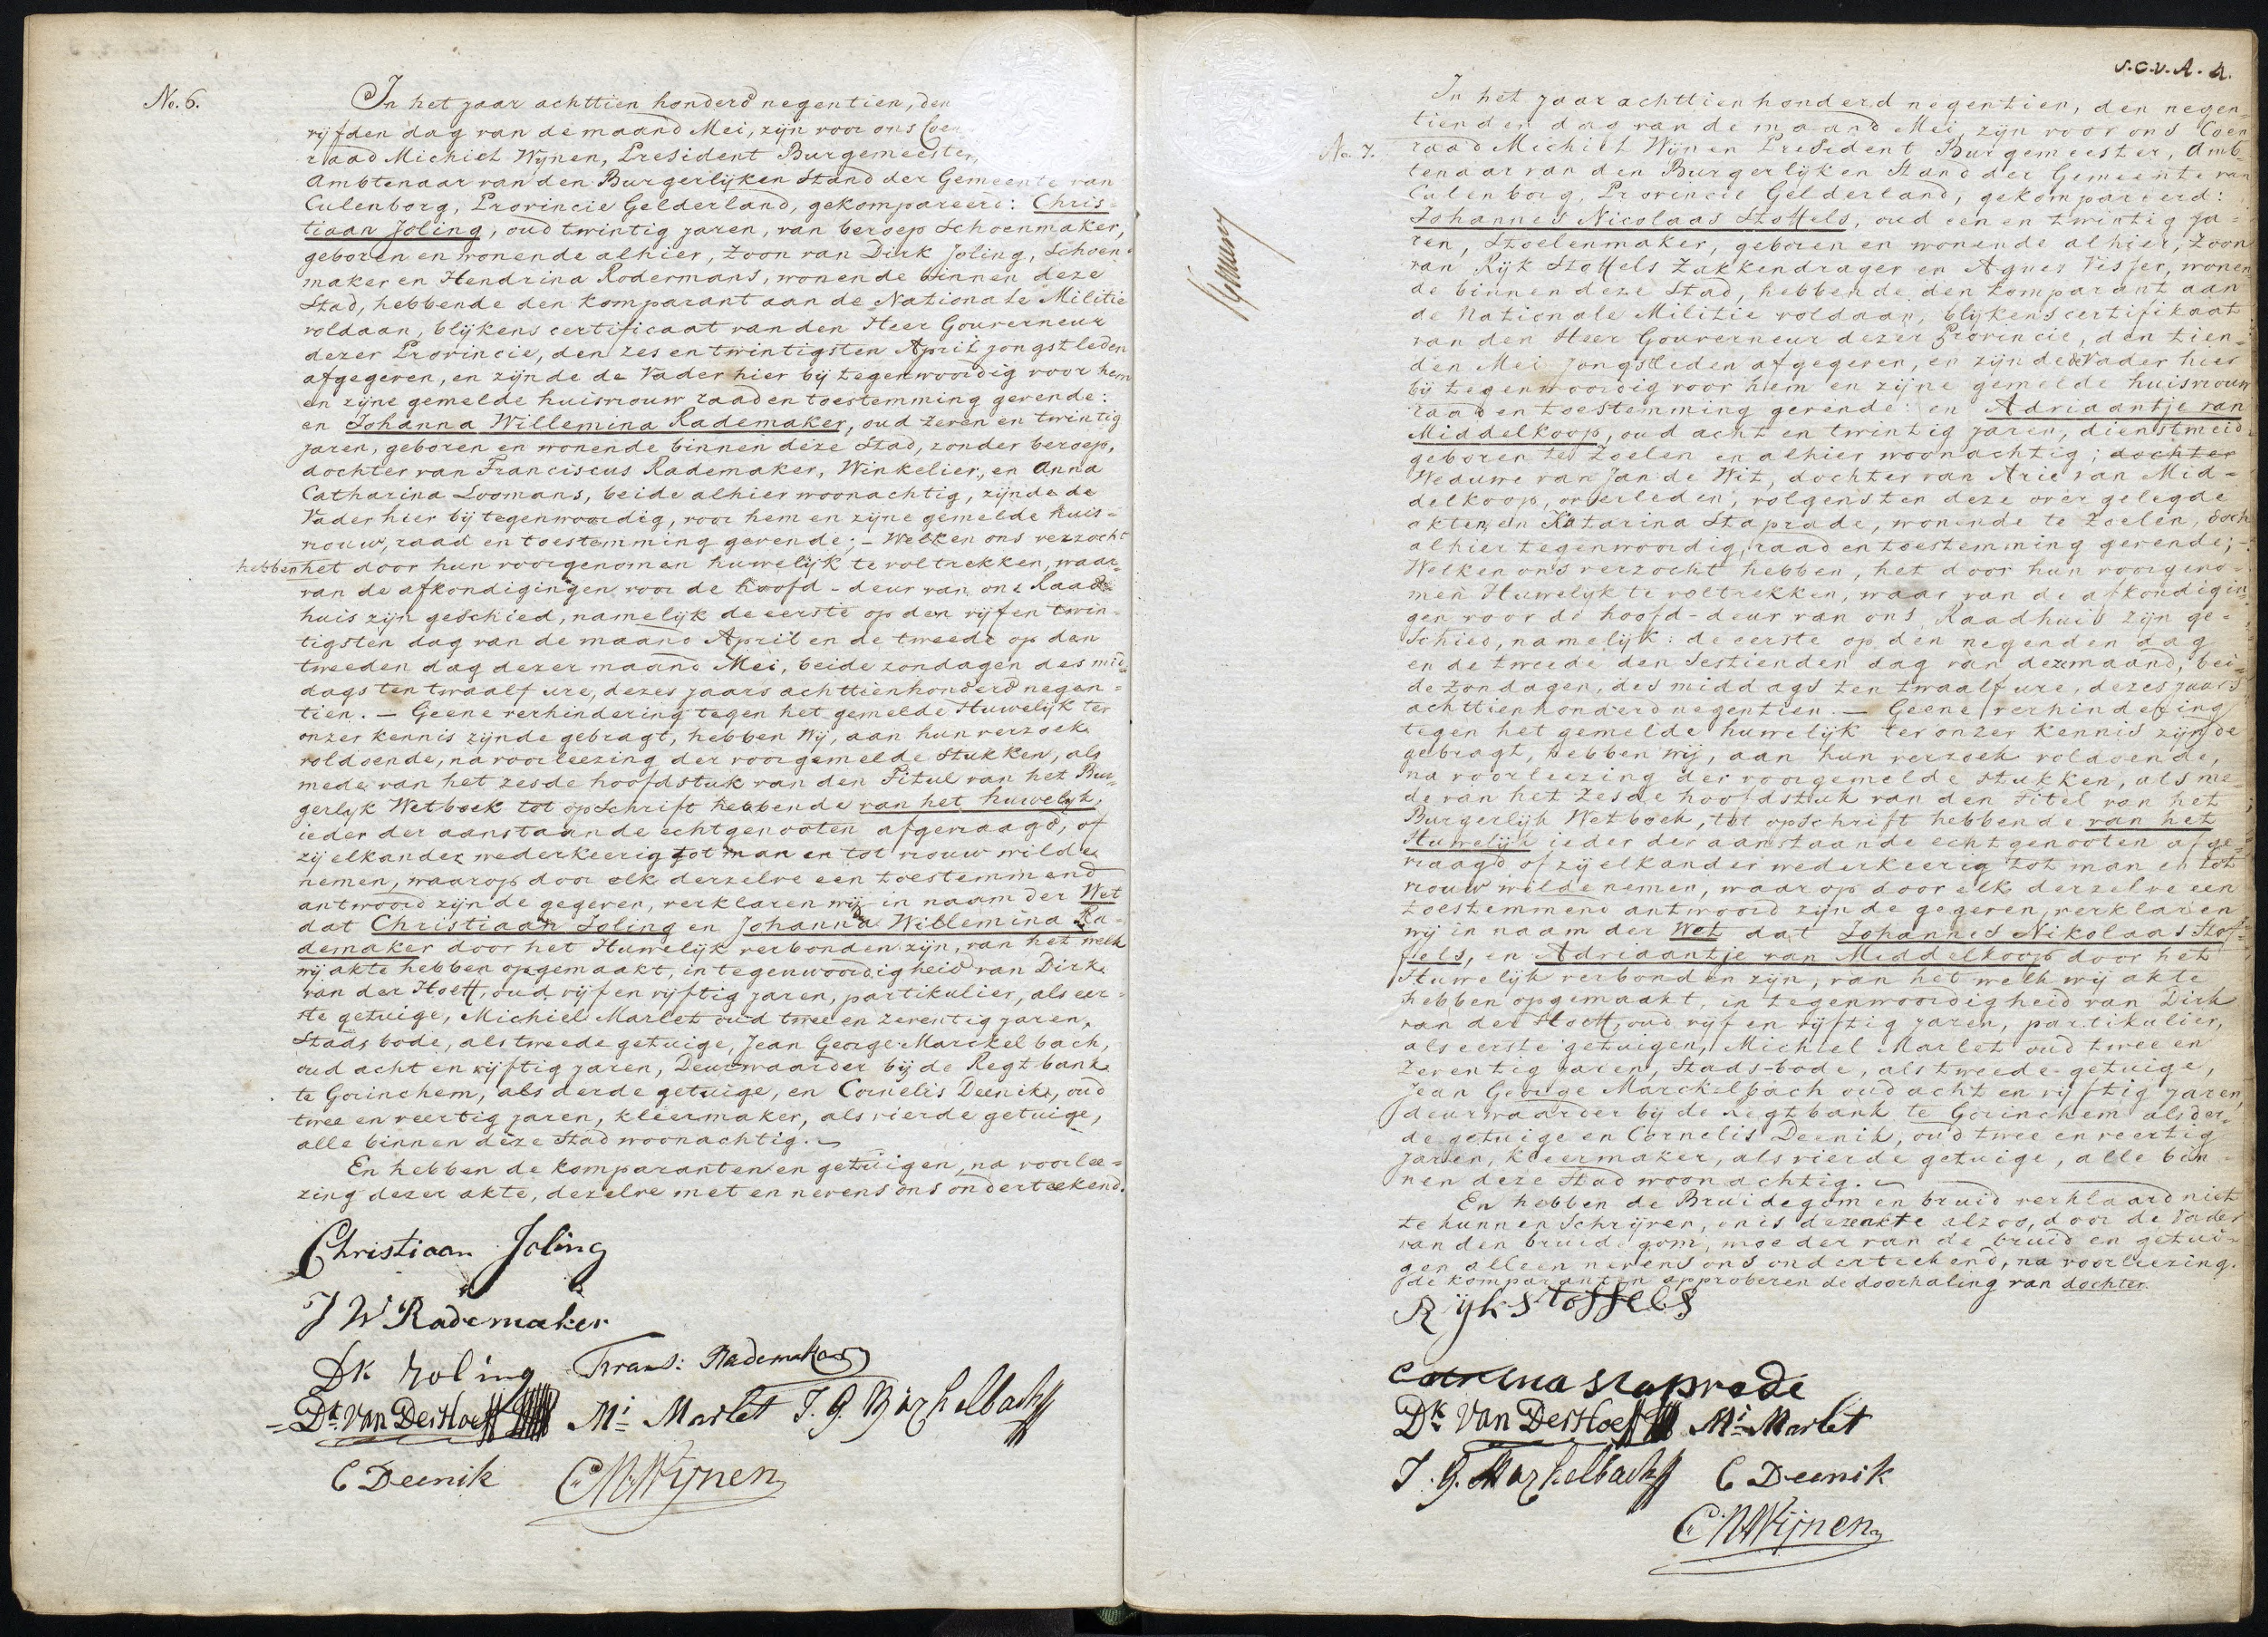 No. 6.
In het jaar achttien honderd negentien, den
vijfden dag van de maand Mei, zijn voor ons Coen
raad Michiel Wijnen, President Burgemeester,
Ambtenaar van den Burgerlijken Stand der Gemeente van
Culenborg, Provincie Gelderland, gekompareerd: Chris-
tiaan Joling, oud twintig jaren, van beroep Schoenmaker,
geboren en wonende alhier, Zoon van Dirk Joling, Schoen-
maker en Hendrina Rodermans, wonende binnen deze
Stad, hebbende den komparant aan de Nationale Militie
voldaan, blijkens certificaat van den Heer Gouverneur
dezer Provincie, den zes en twintigsten April jongstleden
afgegeven, en zijnde de Vader hier bij tegenwoordig voor hem
en zijne gemelde huisvrouw raad en toestemming gevende:
en Johanna Willemina Rademaker, oud zeven en twintig
jaren, geboren en wonende binnen deze Stad, zonder beroep,
dochter van Franciscus Rademaker, Winkelier, en Anna
Catharina Loomans, beide alhier woonachtig, zijnde de
Vader hier bij tegenwoordig, voor hem en zijne gemelde huis-
vrouw, raad en toestemming gevende; - Welken ons verzocht
hebben het door hun voorgenomen huwelijk te voltrekken, waar-
van de afkondigingen voor de hoofd-deur van ons Raad-
huis zijn geschied, namelijk de eerste op den vijf en twin-
tigsten dag van de maand April en de tweede op den
tweeden dag dezer maand Mei, beide zondagen des mid-
dags ten twaalf ure, dezes jaars achttienhonderd negen-
tien. — Geene verhindering tegen het gemelde Huwelijk ter
onzer kennis zijnde gebragt, hebben Wij, aan hun verzoek
voldoende, na voorleezing der voorgemelde Stukken, als
mede van het zesde hoofdstuk van den Titul van het Bur-
gerlijk Wetboek tot opschrift hebbende van het huwelijk,
ieder der aanstaande echtgenooten afgevraagd, of
zij elkander wederkeerig tot man en tot vrouw wilde
nemen, waarop door elk derzelve een toestemmend
antwoord zijnde gegeven, verklaren wij in naam der Wet
dat Christiaan Joling en Johanna Willemina Ra-
demaker door het Huwelijk verbonden zijn, van het welk
wij akte hebben opgemaakt, in tegenwoordigheid van Dirk
van der Hoeff, oud vijf en vijftig jaren, partikulier, als eer-
ste getuige, Michiel Marlet oud twee en zeventig jaren,
Stads bode, als tweede getuige, Jean George Marckelbach,
oud acht en vijftig jaren, Deurwaarder bij de Regtbank
te Gorinchem, als derde getuige, en Cornelis Deenik, oud
twee en veertig jaren, kleermaker, als vierde getuige,
alle binnen deze Stad woonachtig.
En hebben de komparanten en getuigen, na voorlee-
zing dezer akte, dezelve met en nevens ons onderteekend.
Christiaan Joling
J W Rademaker
Dk Joling Frans: Rademaker
Dk Van Der Hoeff Mi Marlet J. G. Markelbach
C Deenik C M Wijnen
No. 7.
In het jaar achttien honderd negentien, den negen-
tienden dag van de maand Mei, zijn voor ons Coen
raad Michiel Wijnen President Burgemeester, Amb-
tenaar van den Burgerlijken Stand der Gemeente van
Culenborg, Provincie Gelderland, gekompareerd:
Johannes Nicolaas Stoffels, oud een en twintig ja-
ren, Stoelenmaker, geboren en wonende alhier, Zoon
van Rijk Stoffels Zakkendrager en Agnes Visser, wonen
de binnen deze Stad, hebbende den komparant aan
de Nationale Militie voldaan, blijkens certifikaat
van den Heer Gouverneur dezer Provincie, den tien-
den Mei jongstleden afgegeven, en zijnde de Vader hier
bij tegenwoordig voor hem en zijne gemelde huisvrouw
raad en toestemming gevende: en Adriaantje van
Middelkoop, oud acht en twintig jaren, dienstmeid
geboren te Zoelen en alhier woonachtig; dochter
Weduwe van Jan de Wit, dochter van Arie van Mid-
delkoop, overleden, volgens ten deze over gelegde
akten, en Katarina Staprade, wonende te Zoelen, doch
alhier tegenwoordig, raad en toestemming gevende; -
Welken ons verzocht hebben, het door hun voorgeno-
men Huwelijk te voltrekken, waar van de afkondigin-
gen voor de hoofd-deur van ons Raadhuis zijn ge-
schied, namelijk: de eerste op den negenden dag
en de tweede den sestienden dag van deze maand, bei-
de zondagen, des middags ten twaalf ure, dezes jaars
achttienhonderd negentien. — Geene verhindering
tegen het gemelde huwelijk ter onzer kennis zijnde
gebragt, hebben wij, aan hun verzoek voldoende,
na voorleezing der voorgemelde stukken, als me-
de van het zesde hoofdstuk van den Titel van het
Burgerlijk Wetboek, tot opschrift hebbende van het
Huwelijk ieder der aanstaande echtgenooten afge-
vraagd of zij elkander wederkeerig tot man en tot
vrouw wilde nemen, waarop door elk derzelve een
toestemmend antwoord zijnde gegeven, verklaren
wij in naam der Wet dat Johannes Nikolaas Stof-
fels, en Adriaantje van Middelkoop door het
Huwelijk verbonden zijn, van het welk wij akte
hebben opgemaakt, in tegenwoordigheid van Dirk
van der Hoeff, oud vijf en vijftig jaren, partikulier,
als eerste getuigen, Michiel Marlet oud twee en
zeventig jaren, Stads-bode, als tweede getuige,
Jean George Marckelbach oud acht en vijftig jaren,
deurwaarder bij de Regtbank te Gorinchem als der-
de getuige en Cornelis Deenik, oud twee en veertig
jaren, kleermaker, als vierde getuige, alle bin-
nen deze Stad woonachtig.
En hebben de Bruidegom en bruid verklaard niet
te kunnen Schrijven, en is deze akte alzoo, door de Vader
van den bruidegom, moeder van de bruid en getui-
gen alleen nevens ons onderteekend, na voorleezing.
de komparanten approberen de doorhaling van dochter
Rijk Stoffels
Catrina staprade
Dk Van Der Hoeff Mi Marlet
J. G. Markelbach C Deenik
C M Wijnen